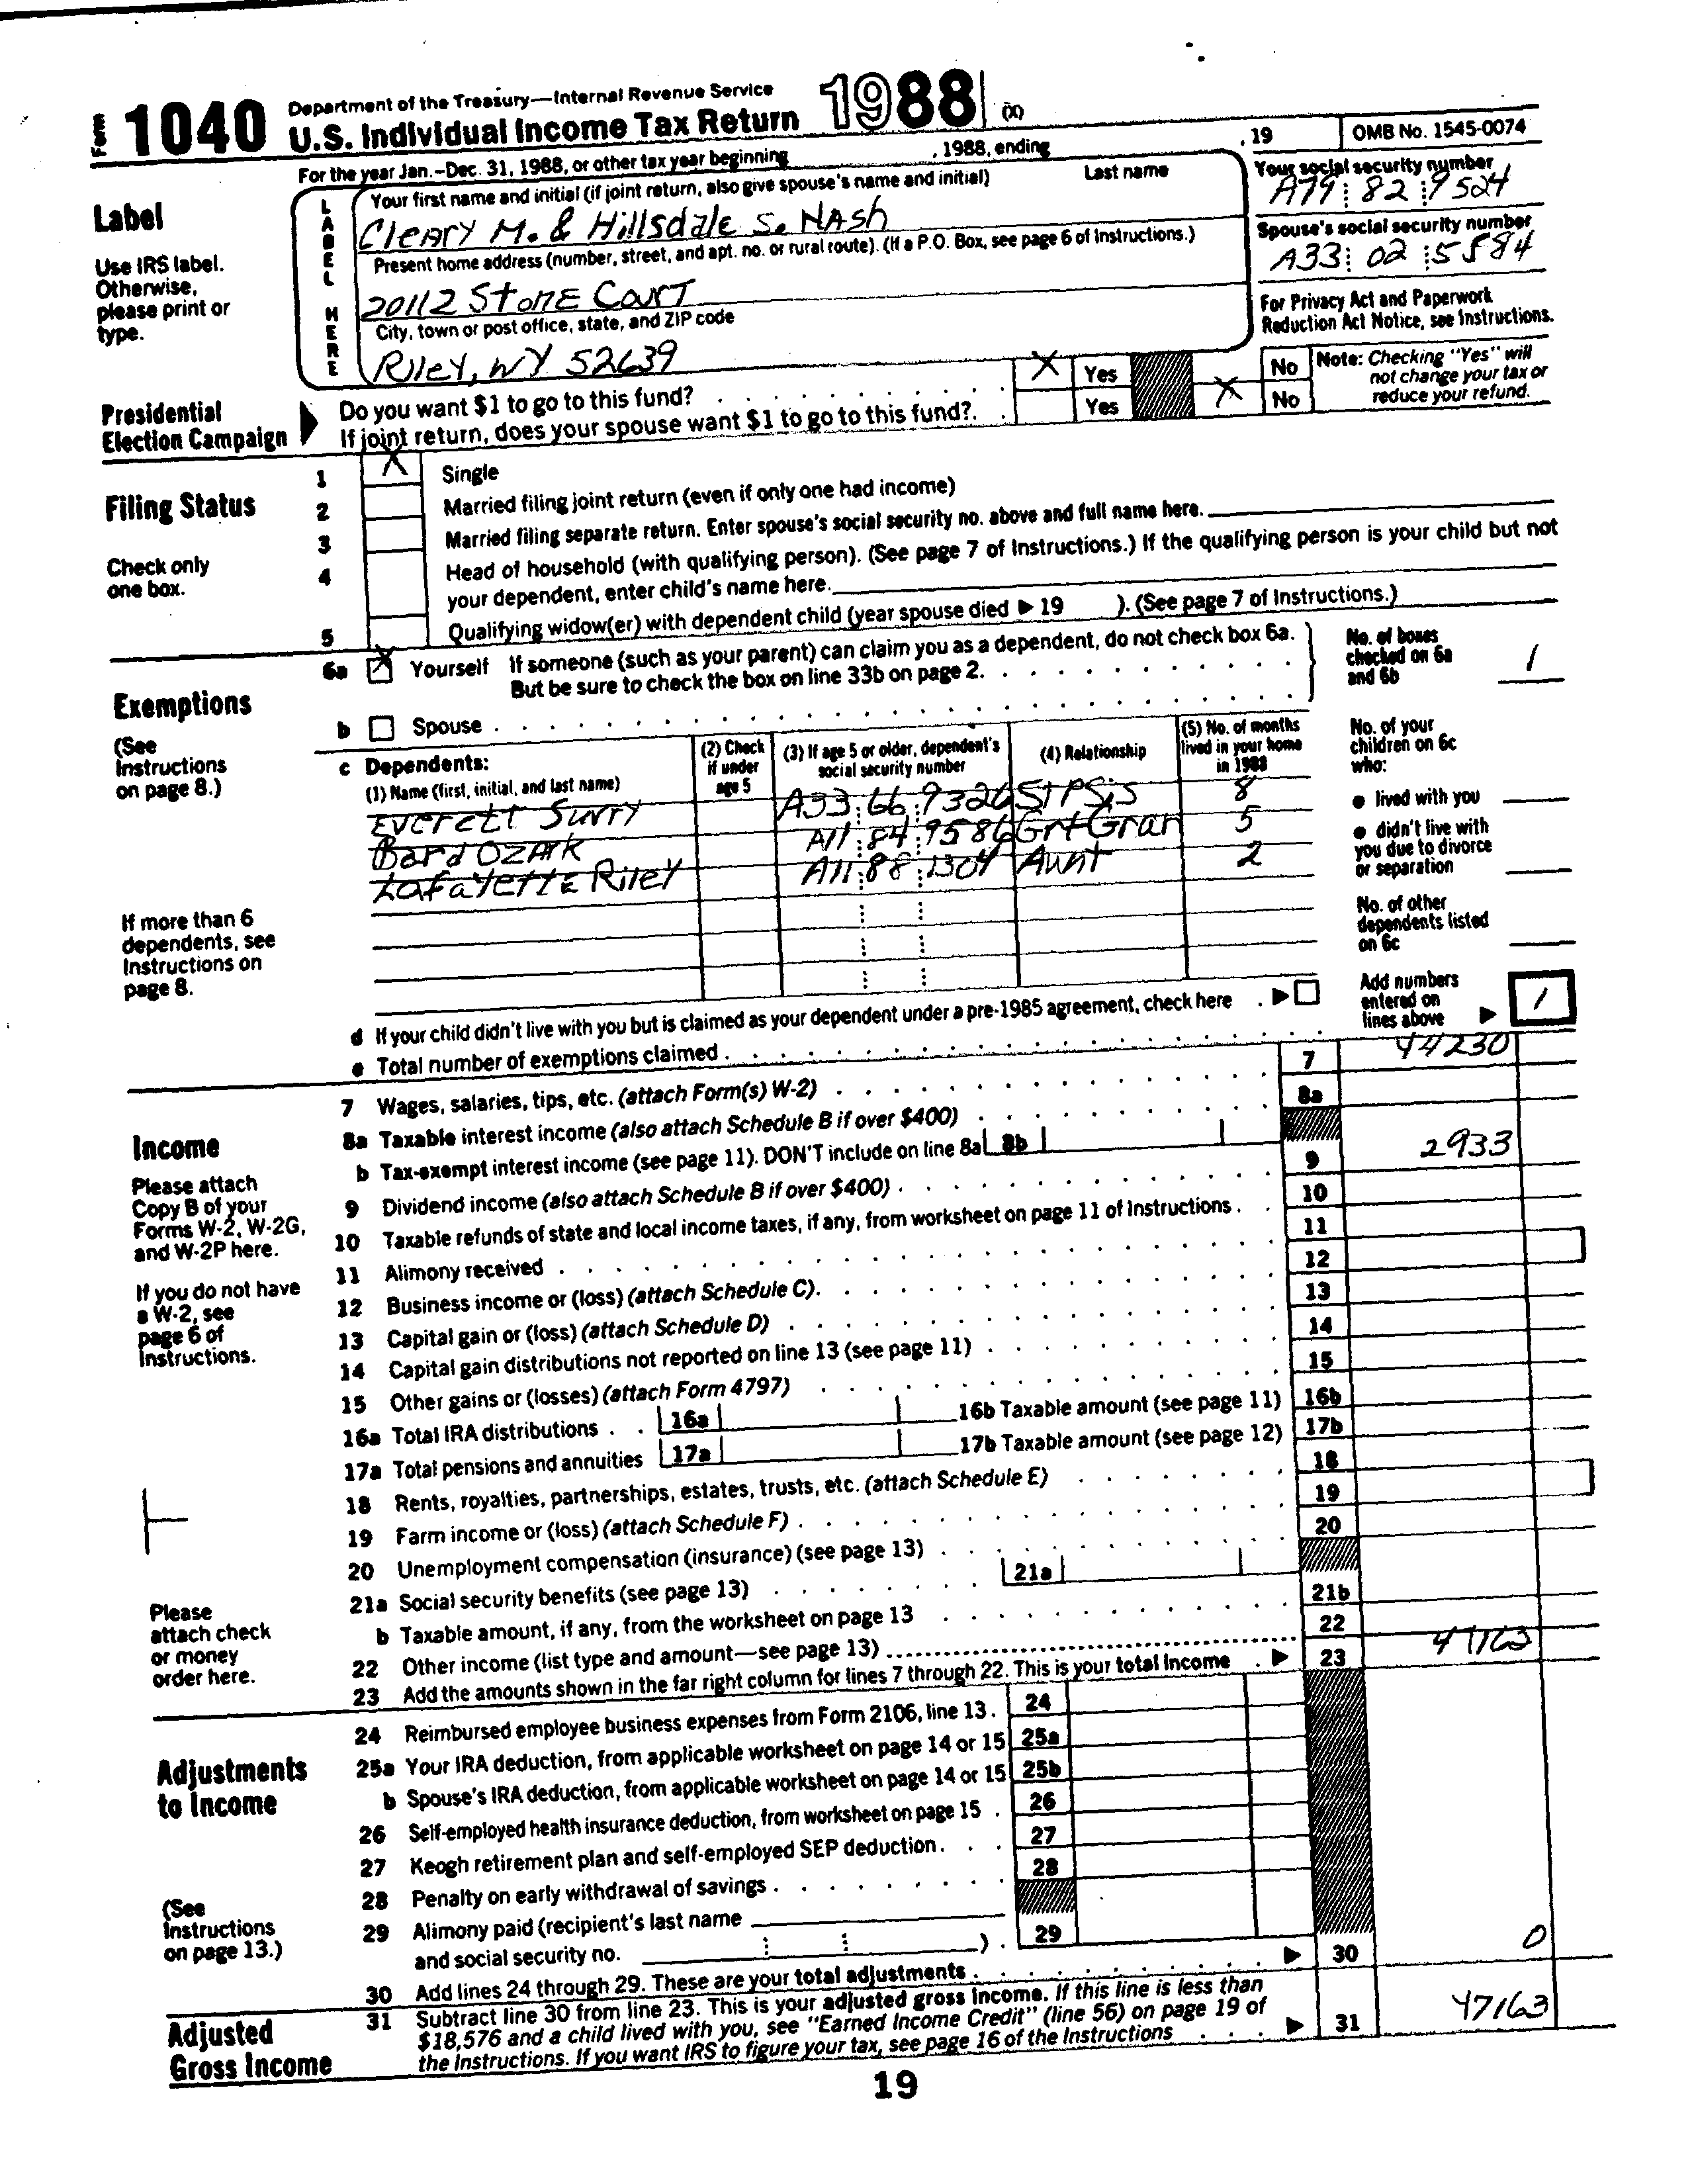 Form 1040 Department of the Treasury—Internal Revenue Service
U.S. Individual Income Tax Return 1988 (X)
For the year Jan.–Dec. 31, 1988, or other tax year beginning , 1988, ending , 19 OMB No. 1545-0074
Label
Use IRS label.
Otherwise,
please print or
type.
LABEL HERE
Your first name and initial (if joint return, also give spouse's name and initial) Last name
Cleary M. & Hillsdale S. Nash
Present home address (number, street, and apt. no. or rural route). (If a P.O. Box, see page 6 of Instructions.)
20112 Stone Court
City, town or post office, state, and ZIP code
Riley, WY 52639
Your social security number
A79 82 9524
Spouse's social security number
A33 02 5584
For Privacy Act and Paperwork
Reduction Act Notice, see Instructions.
Presidential
Election Campaign
Do you want $1 to go to this fund? X Yes No
If joint return, does your spouse want $1 to go to this fund? Yes X No
Note: Checking "Yes" will
not change your tax or
reduce your refund.
Filing Status
Check only
one box.
1 X Single
2 Married filing joint return (even if only one had income)
3 Married filing separate return. Enter spouse's social security no. above and full name here.
4 Head of household (with qualifying person). (See page 7 of Instructions.) If the qualifying person is your child but not
your dependent, enter child's name here.
5 Qualifying widow(er) with dependent child (year spouse died ▶ 19 ). (See page 7 of Instructions.)
Exemptions
(See
Instructions
on page 8.)
6a X Yourself If someone (such as your parent) can claim you as a dependent, do not check box 6a.
But be sure to check the box on line 33b on page 2.
b Spouse
No. of boxes
checked on 6a
and 6b 1
c Dependents:
(1) Name (first, initial, and last name)
(2) Check
if under
age 5
(3) If age 5 or older, dependent's
social security number
(4) Relationship
(5) No. of months
lived in your home
in 1988
Everett Surry A33 66 9326 StPSis 8
Bard Ozark A11 84 9586 GrtGran 5
Lafayette Riley A11 88 1304 Aunt 2
No. of your
children on 6c
who:
● lived with you
● didn't live with
you due to divorce
or separation
No. of other
dependents listed
on 6c
If more than 6
dependents, see
Instructions on
page 8.
d If your child didn't live with you but is claimed as your dependent under a pre-1985 agreement, check here ▶
e Total number of exemptions claimed
Add numbers
entered on
lines above ▶ 1
Income
Please attach
Copy B of your
Forms W-2, W-2G,
and W-2P here.
If you do not have
a W-2, see
page 6 of
Instructions.
Please
attach check
or money
order here.
7 Wages, salaries, tips, etc. (attach Form(s) W-2) 7 44230
8a Taxable interest income (also attach Schedule B if over $400) 8a
b Tax-exempt interest income (see page 11). DON'T include on line 8a 8b
9 Dividend income (also attach Schedule B if over $400) 9 2933
10 Taxable refunds of state and local income taxes, if any, from worksheet on page 11 of Instructions 10
11 Alimony received 11
12 Business income or (loss) (attach Schedule C) 12
13 Capital gain or (loss) (attach Schedule D) 13
14 Capital gain distributions not reported on line 13 (see page 11) 14
15 Other gains or (losses) (attach Form 4797) 15
16a Total IRA distributions 16a 16b Taxable amount (see page 11) 16b
17a Total pensions and annuities 17a 17b Taxable amount (see page 12) 17b
18 Rents, royalties, partnerships, estates, trusts, etc. (attach Schedule E) 18
19 Farm income or (loss) (attach Schedule F) 19
20 Unemployment compensation (insurance) (see page 13) 20
21a Social security benefits (see page 13) 21a
b Taxable amount, if any, from the worksheet on page 13 21b
22 Other income (list type and amount—see page 13) 22
23 Add the amounts shown in the far right column for lines 7 through 22. This is your total income ▶ 23 47163
Adjustments
to Income
(See
Instructions
on page 13.)
24 Reimbursed employee business expenses from Form 2106, line 13. 24
25a Your IRA deduction, from applicable worksheet on page 14 or 15 25a
b Spouse's IRA deduction, from applicable worksheet on page 14 or 15 25b
26 Self-employed health insurance deduction, from worksheet on page 15 26
27 Keogh retirement plan and self-employed SEP deduction 27
28 Penalty on early withdrawal of savings 28
29 Alimony paid (recipient's last name
and social security no. ) 29
30 Add lines 24 through 29. These are your total adjustments ▶ 30 0
Adjusted
Gross Income
31 Subtract line 30 from line 23. This is your adjusted gross income. If this line is less than
$18,576 and a child lived with you, see "Earned Income Credit" (line 56) on page 19 of
the Instructions. If you want IRS to figure your tax, see page 16 of the Instructions ▶ 31 47163
19